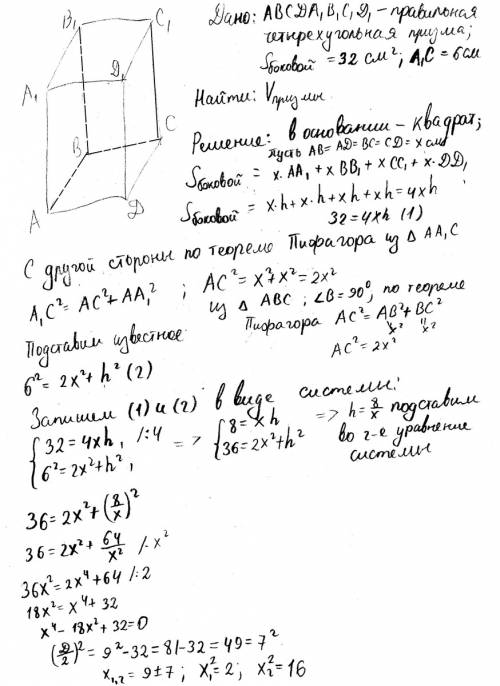 B₁
C₁
A₁
D₁
B
C
A
D
Дано: ABCDA₁B₁C₁D₁ – правильная
четырехугольная призма;
Sбоковой = 32 см²; A₁C = 6 см
Найти: Vпризмы.
Решение: в основании – квадрат;
пусть AB = AD = BC = CD = x см
Sбоковой = x·AA₁ + x BB₁ + x CC₁ + x·DD₁
Sбоковой = x·h + x·h + xh + xh = 4xh
32 = 4xh (1)
С другой стороны по теореме Пифагора из △ AA₁C
A₁C² = AC² + AA₁² ; AC² = x² + x² = 2x²
из △ ABC ; ∠B = 90°, по теореме
Пифагора AC² = AB² + BC²
x² x²
AC² = 2x²
Подставим известное
6² = 2x² + h² (2)
Запишем (1) и (2) в виде системы:
{ 32 = 4xh, /:4 => { 8 = xh => h = 8/x подставим
6² = 2x² + h², 36 = 2x² + h² во 2-е уравнение
системы
36 = 2x² + (8/x)²
36 = 2x² + 64/x² /·x²
36x² = 2x⁴ + 64 /:2
18x² = x⁴ + 32
x⁴ – 18x² + 32 = 0
(D/2)² = 9² – 32 = 81 – 32 = 49 = 7²
x₁,₂ = 9 ± 7 ; x₁² = 2 ; x₂² = 16